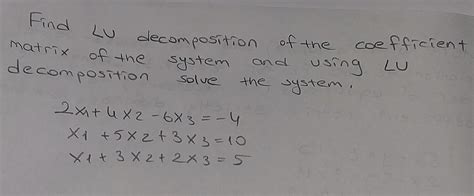 Find LU decomposition of the coefficient
matrix of the system and using LU
decomposition solve the system.
2x1+4x2-6x3=-4
x1+5x2+3x3=10
x1+3x2+2x3=5